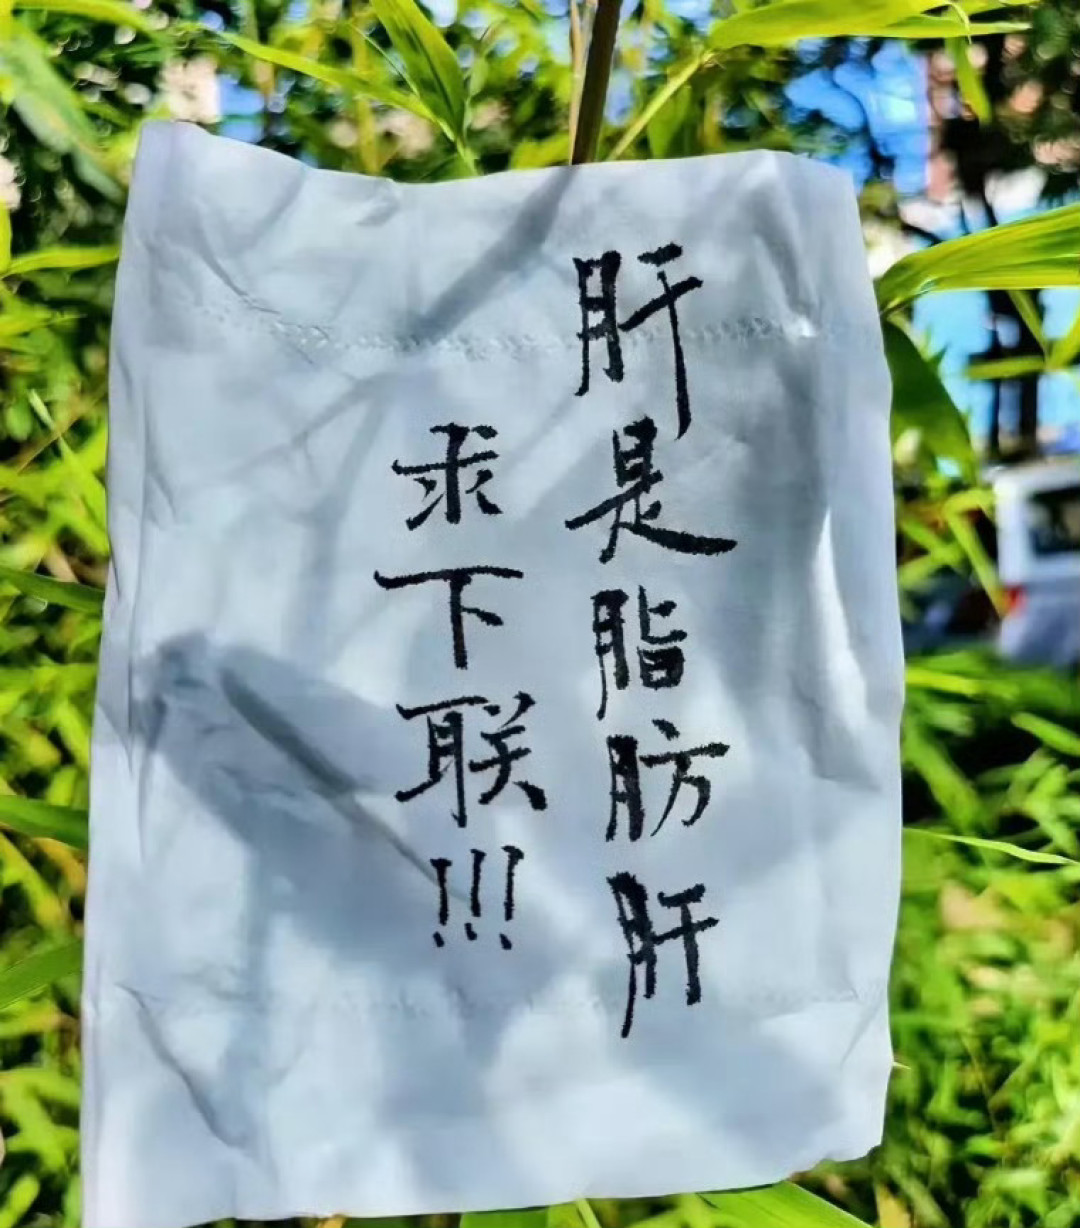 肝是脂肪肝
求下联!!!